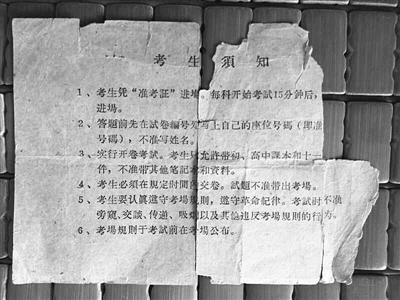 考生須知
1、考生凭“准考証”进場。每科开始考試15分钟后，
进場。
2、答題前先在試卷編号处写上自己的座位号碼（即准
号碼），不准写姓名。
3、实行开卷考試。考生只允許带初、高中課本和十一
件，不准带其他笔記本和資料。
4、考生必須在規定时間内交卷。試題不准带出考場。
5、考生要认真遵守考場規则，遵守革命紀律。考試时不准
旁窺、交談、传递、吸烟以及其他违反考場規则的行为。
6、考場規则于考試前在考場公布。